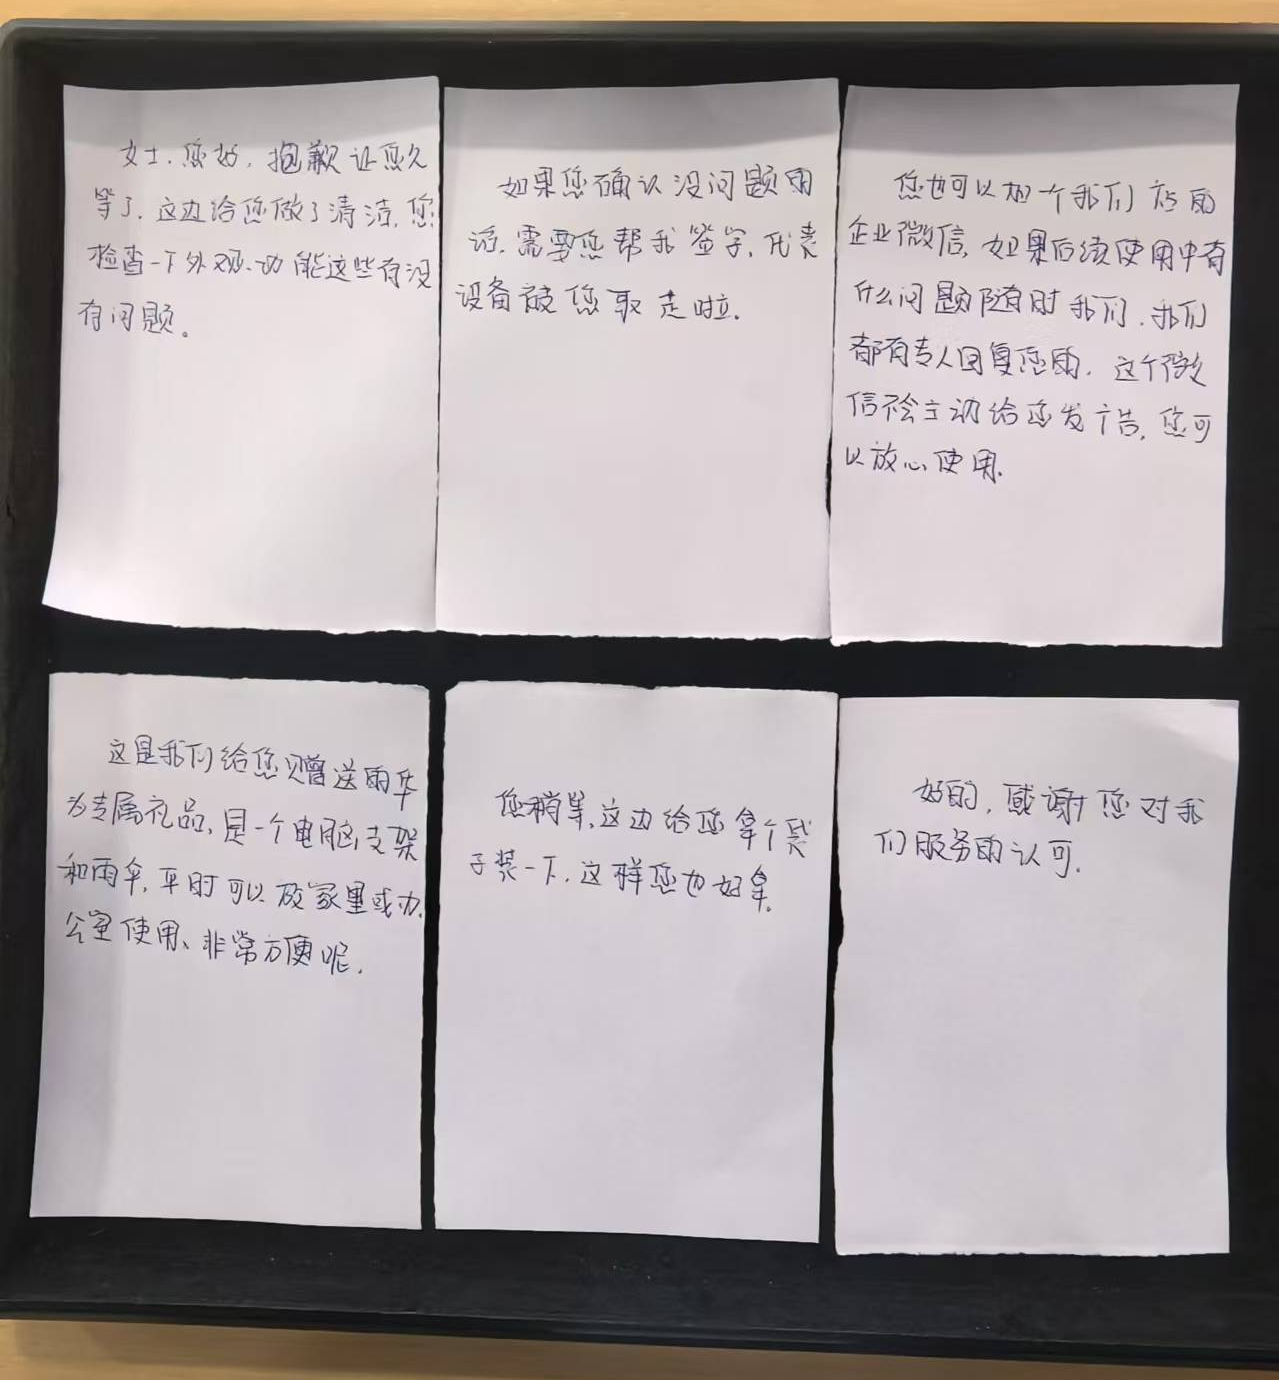 女士,您好,抱歉让您久
等了,这边给您做了清洁,您
检查一下外观、功能这些有没
有问题。
如果您确认没问题的
话,需要您帮我签字,代表
设备被您取走啦.
您也可以加一个我们店的
企业微信,如果后续使用中有
什么问题随时我们,我们
都有专人回复您的,这个微
信不会主动给您发广告,您可
以放心使用.
这是我们给您赠送的华
为专属礼品,是一个电脑支架
和雨伞,平时可以放家里或办
公室使用、非常方便呢.
您稍等,这边给您拿个袋
子装一下,这样您也好拿.
好的,感谢您对我
们服务的认可.